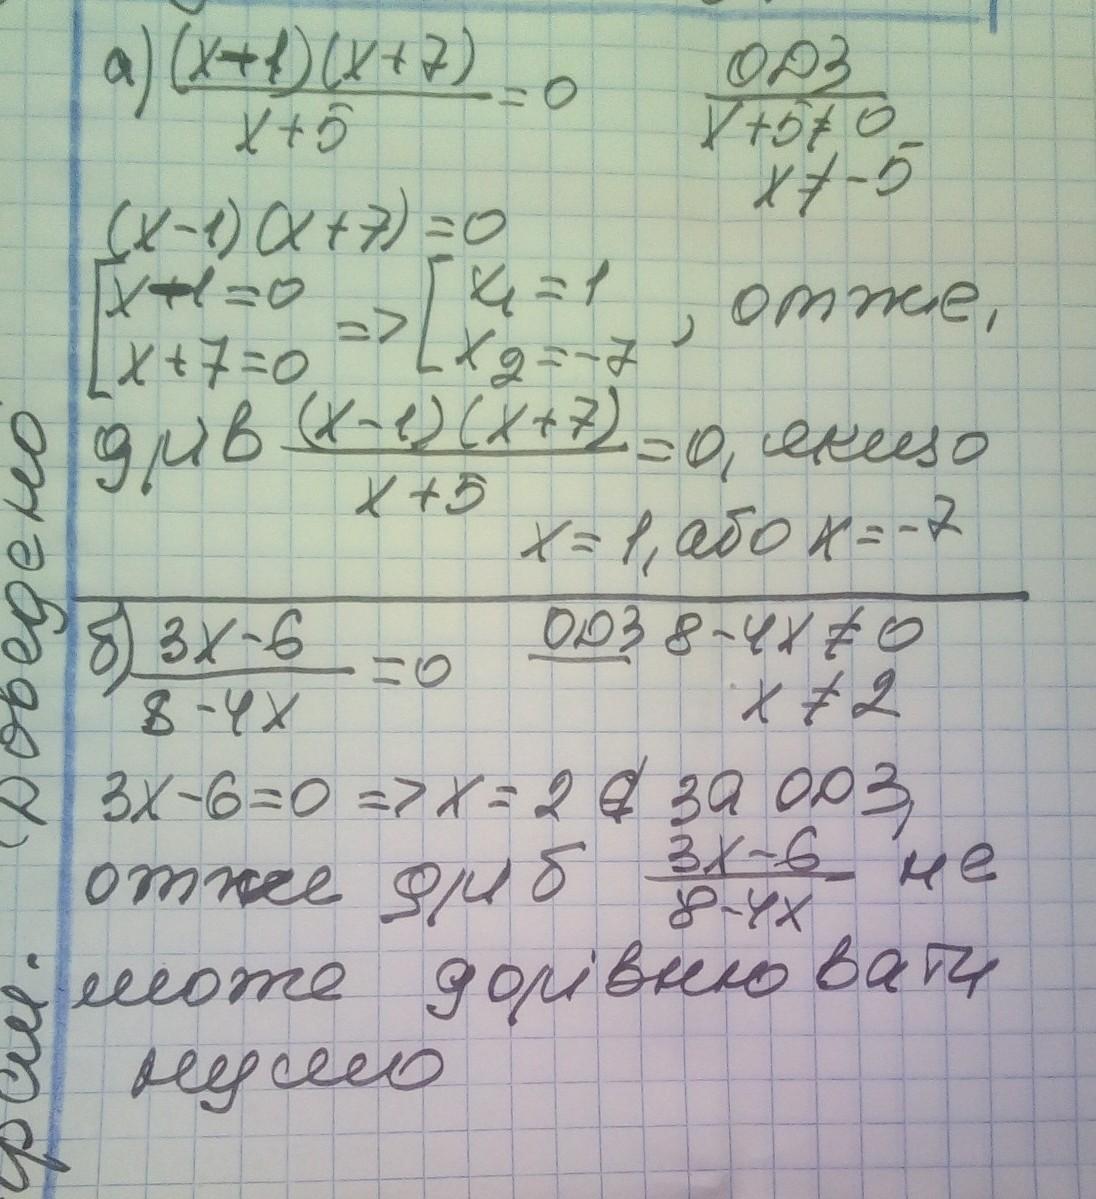 а) (x-1)(x+7) / x+5 = 0
ОДЗ
x+5≠0
x≠-5
(x-1)(x+7)=0
[x-1=0 => [x₁=1
[x+7=0 [x₂=-7, отже,
дріб (x-1)(x+7) / x+5 = 0, якщо
x=1, або x=-7
б) 3x-6 / 8-4x = 0
ОДЗ 8-4x≠0
x≠2
3x-6=0 => x=2 ∉ за ОДЗ,
отже дріб 3x-6 / 8-4x не
може дорівнювати
нулю
Доведено